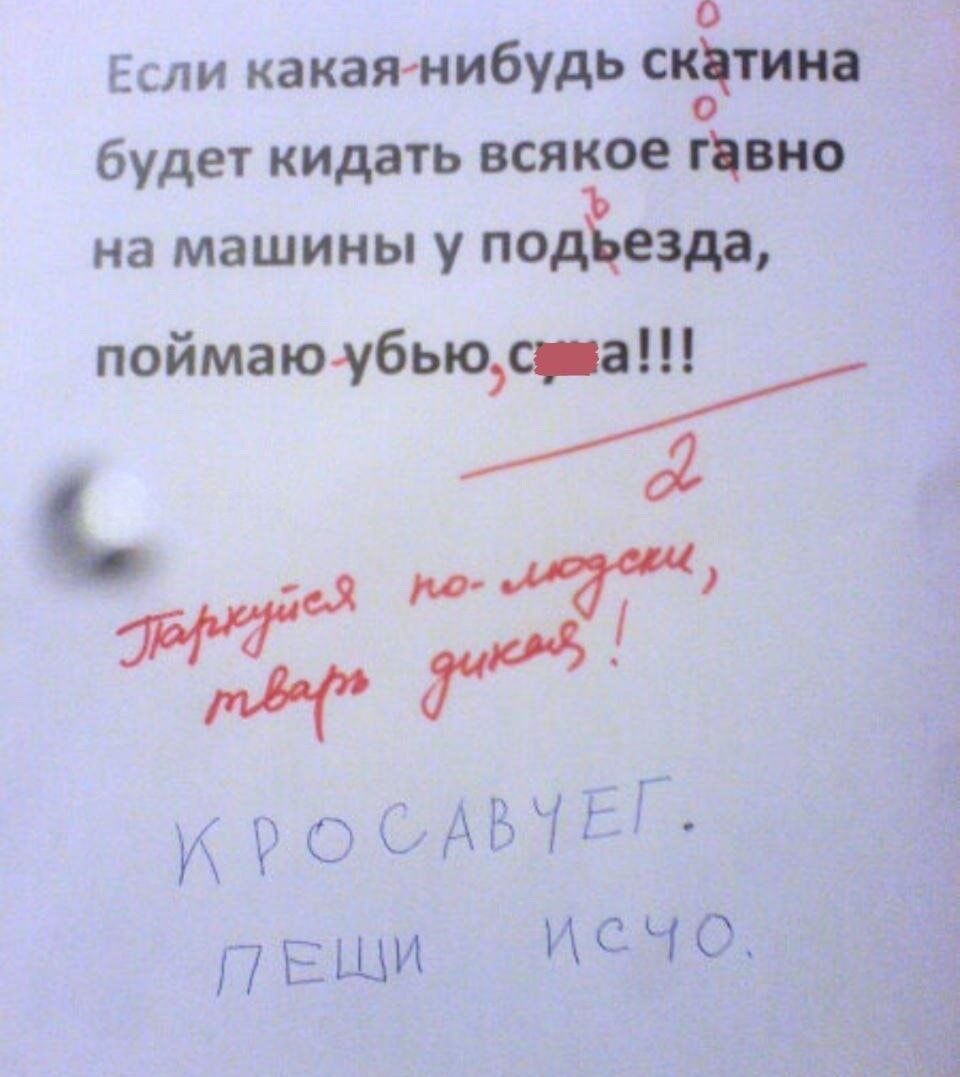 Если какая-нибудь скатина
о
будет кидать всякое гавно
о
на машины у подьезда,
ъ
поймаю-убью, с а!!!
2
Паркуйся по-людски,
тварь дикая!
КРОСАВЧЕГ.
ПЕШИ ИСЧО.